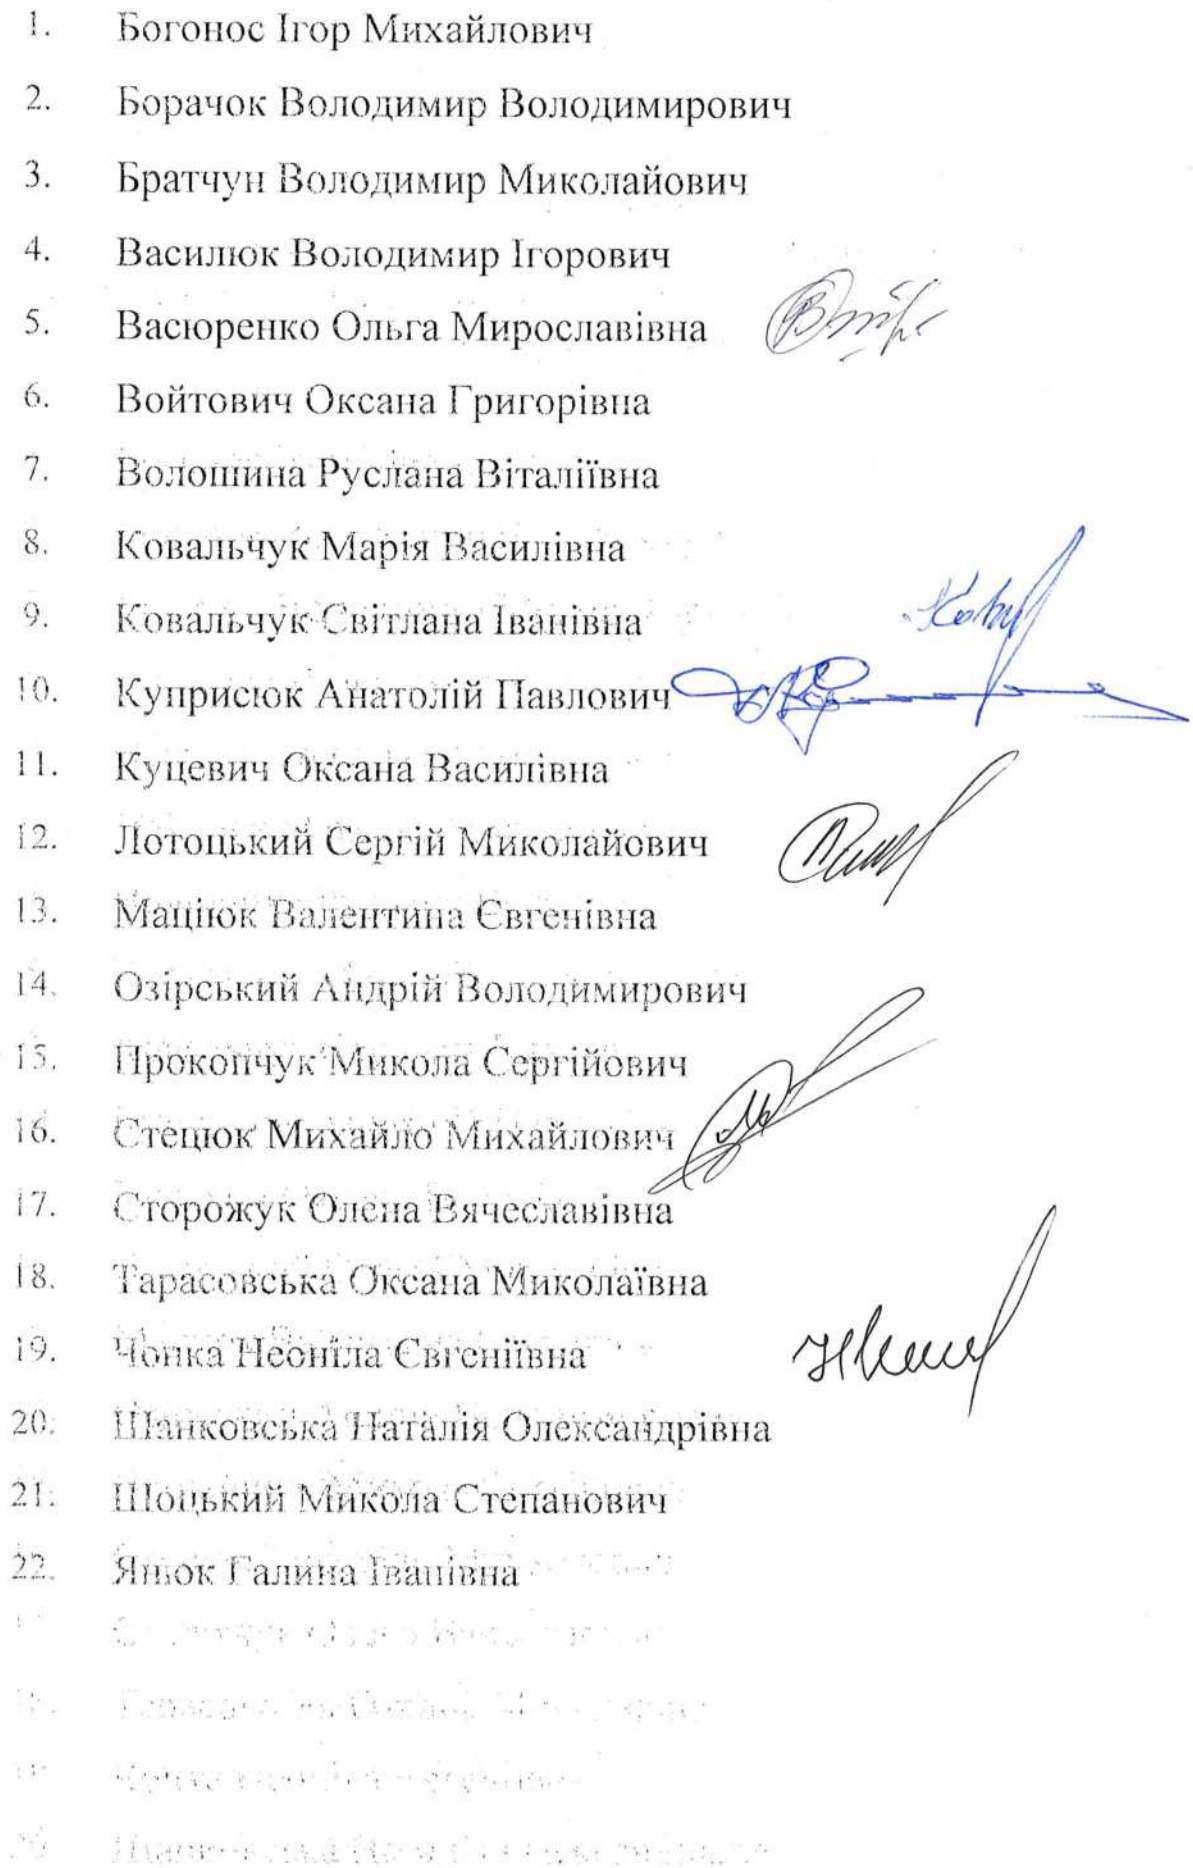 1. Богонос Ігор Михайлович
2. Борачок Володимир Володимирович
3. Братчун Володимир Миколайович
4. Василюк Володимир Ігорович
5. Васюренко Ольга Мирославівна
6. Войтович Оксана Григорівна
7. Волошина Руслана Віталіївна
8. Ковальчук Марія Василівна
9. Ковальчук Світлана Іванівна
10. Куприсюк Анатолій Павлович
11. Куцевич Оксана Василівна
12. Лотоцький Сергій Миколайович
13. Маціюк Валентина Євгенівна
14. Озірський Андрій Володимирович
15. Прокопчук Микола Сергійович
16. Стецюк Михайло Михайлович
17. Сторожук Олена Вячеславівна
18. Тарасовська Оксана Миколаївна
19. Чопка Неоніла Євгеніївна
20. Шанковська Наталія Олександрівна
21. Шоцький Микола Степанович
22. Янюк Галина Іванівна